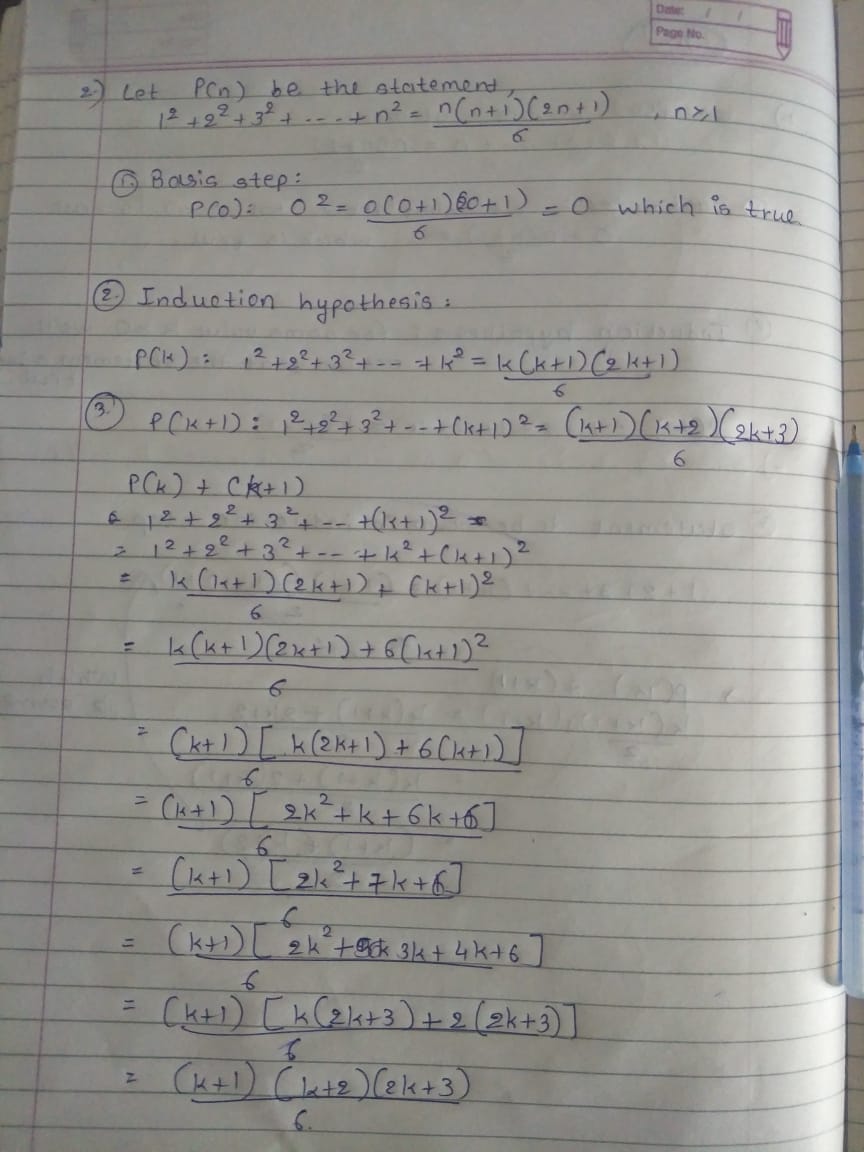 Date: / /
Page No.
2.) Let P(n) be the statement,
1² + 2² + 3² + --- + n² = n(n+1)(2n+1)/6 , n≥1
① Basis step:
P(0): 0² = 0(0+1)(0+1)/6 = 0 which is true
② Induction hypothesis:
P(k): 1² + 2² + 3² + --- + k² = k(k+1)(2k+1)/6
③ P(k+1): 1² + 2² + 3² + --- + (k+1)² = (k+1)(k+2)(2k+3)/6
P(k) + (k+1)
1² + 2² + 3² + --- + (k+1)² =
= 1² + 2² + 3² + --- + k² + (k+1)²
= k(k+1)(2k+1)/6 + (k+1)²
= k(k+1)(2k+1) + 6(k+1)²/6
= (k+1)[k(2k+1) + 6(k+1)]/6
= (k+1)[2k² + k + 6k + 6]/6
= (k+1)[2k² + 7k + 6]/6
= (k+1)[2k² + 3k + 4k + 6]/6
= (k+1)[k(2k+3) + 2(2k+3)]/6
= (k+1)(k+2)(2k+3)/6.